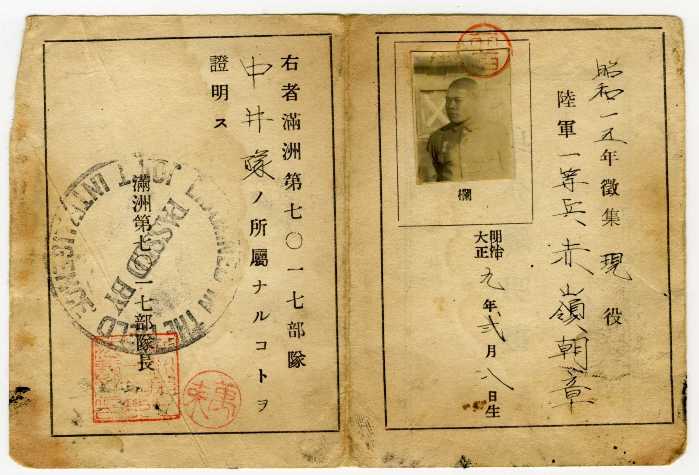 昭和一五年徴集現役
陸軍一等兵赤嶺朝章
欄
明治
大正
九年弐月八日生
右者滿洲第七〇一七部隊
中井隊ノ所屬ナルコトヲ
證明ス
滿洲第七〇一七部隊長
EXAMINED IN THE FIELD
PASSED BY
JOINT